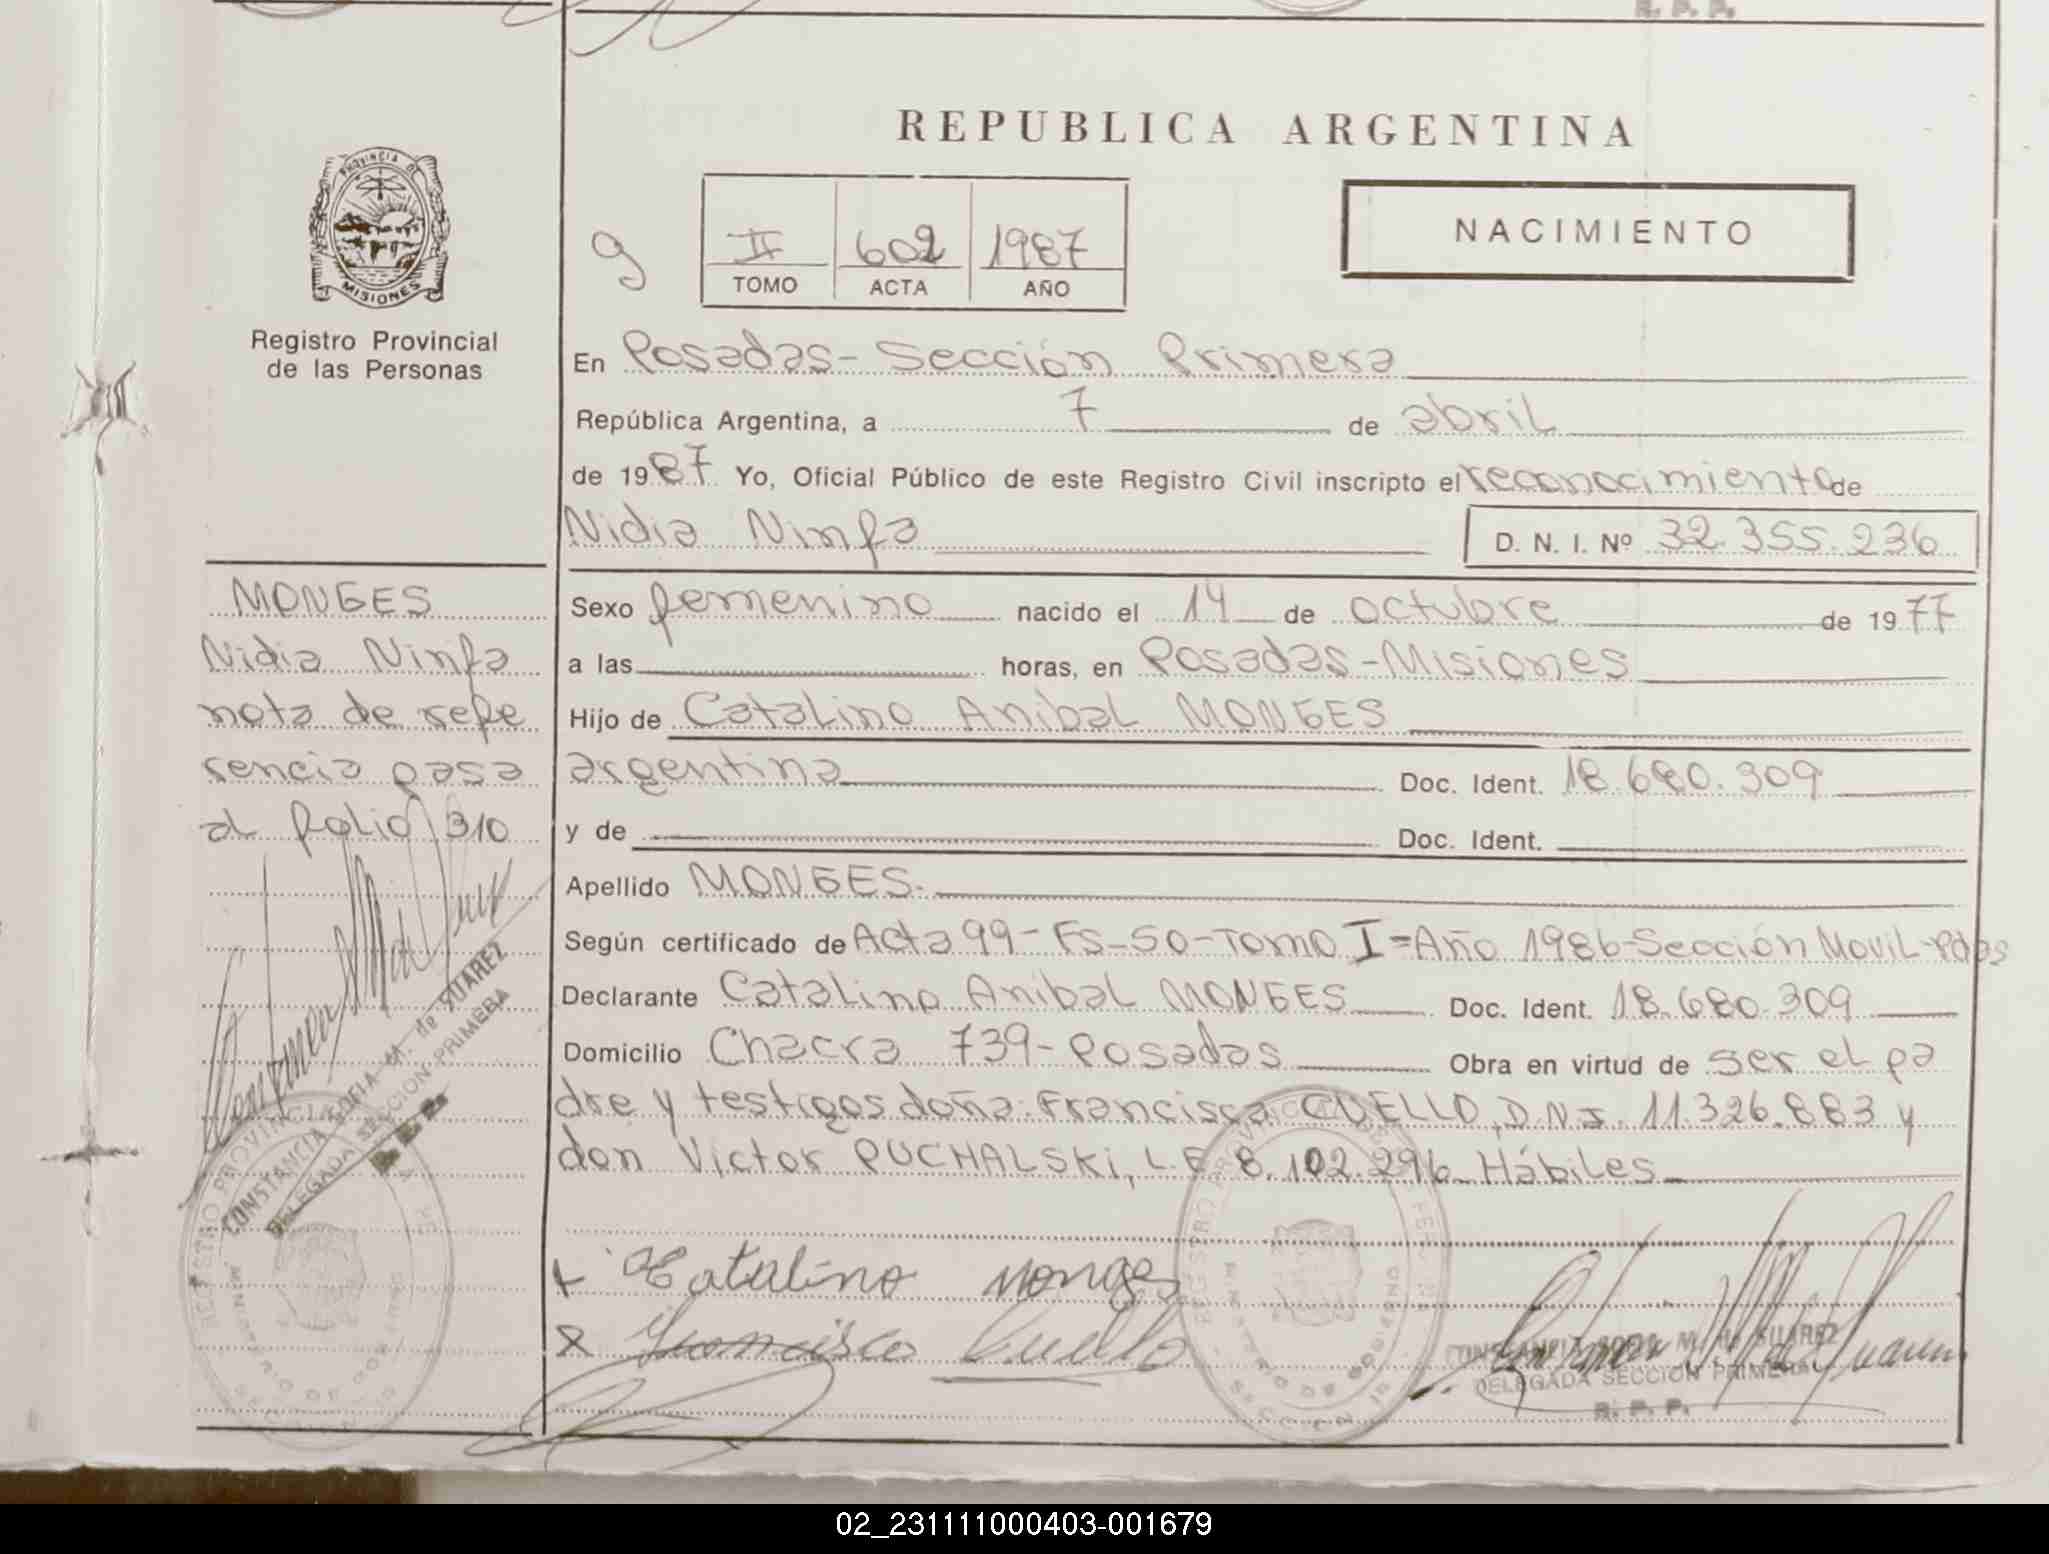 R. P. P.
REPUBLICA ARGENTINA
PROVINCIA DE
MISIONES
Registro Provincial
de las Personas
9
II 602 1987
TOMO ACTA AÑO
NACIMIENTO
En Posadas-Sección Primera
República Argentina, a 7 de abril
de 1987 Yo, Oficial Público de este Registro Civil inscripto el reconocimiento de
Nidia Ninfa D. N. I. Nº 32.355.236
Sexo femenino nacido el 14 de octubre de 1977
a las horas, en Posadas-Misiones
Hijo de Catalino Anibal MONGES
argentina Doc. Ident. 18.680.309
y de Doc. Ident.
Apellido MONGES.
Según certificado de Acta 99-Fs-50-Tomo I=Año 1986-Sección Movil-Pdas
Declarante Catalino Anibal MONGES Doc. Ident. 18.680.309
Domicilio Chacra 739-Posadas Obra en virtud de ser el pa
dre y testigos doña Francisca CUELLO, D.N.I. 11.326.883 y
don Victor PUCHALSKI, L.E 8.102.296 Hábiles
x Catalino Monges
x Francisca Cuello
CONSTANCIA SOFIA M. de SUAREZ
DELEGADA SECCION PRIMERA
R. P. P.
MONGES
Nidia Ninfa
nota de refe
rencia pasa
al folio 310
CONSTANCIA SOFIA M. de SUAREZ
DELEGADA SECCION PRIMERA
R. P. P.
02_231111000403-001679